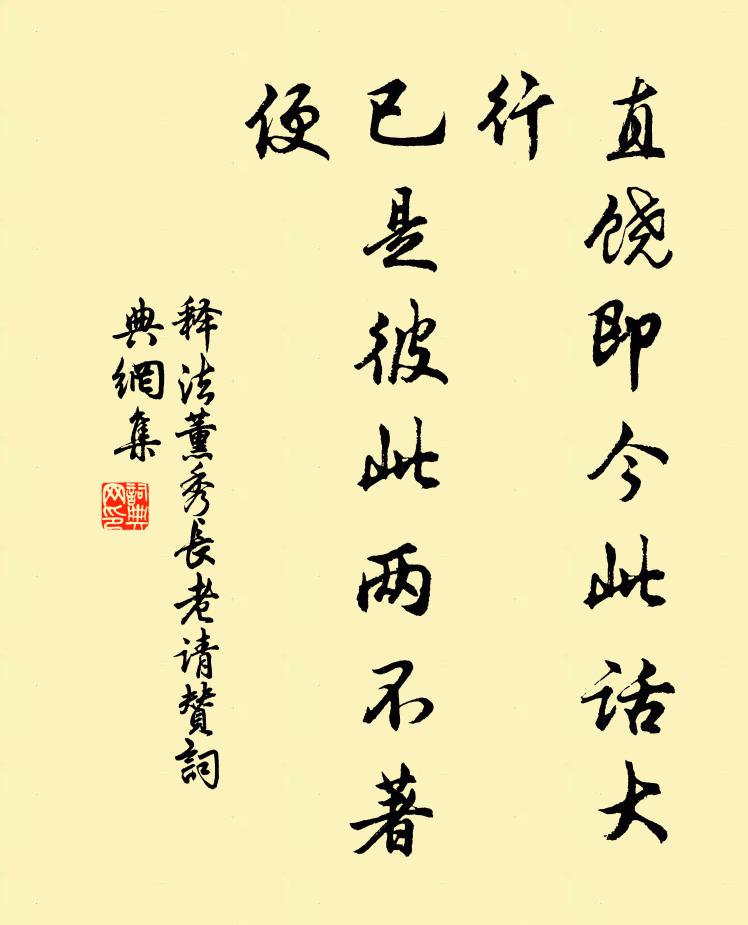 直饶即今此话大
行
已是彼此两不著
便
释法薰秀長老请赞詞
典網集
詞典
网印